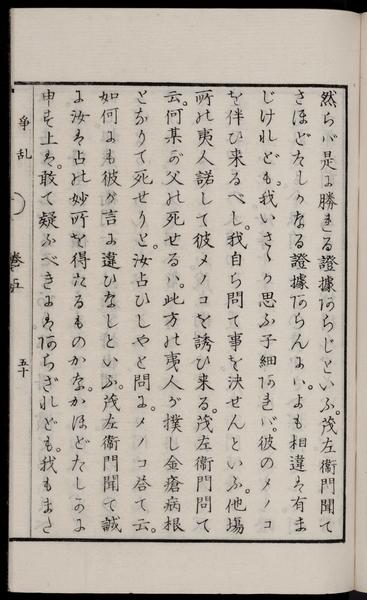 然らバ是に勝れる證據あらじといふ。茂左衛門聞て
さほどたしかなる證據あらんにハ。よも相違は有ま
じけれども。我いさゝか思ふ子細あれバ。彼のメノコ
を伴ひ来るべし。我自ら問て事を決せんといふ。他場
所の夷人諾して彼メノコを誘ひ来る。茂左衛門問て
云。何某が父の死せるハ。此方の夷人が撲し金瘡病根
となりて死せりと。汝占ひしやと問に。メノコ答て云。
如何にも彼が言に違ひなしといふ。茂左衛門聞て誠
に汝は占の妙所を得たるものかな。かほどたしかに
申す上は。敢て疑ふべきにはあらざれども。我もまた
争乱
巻五
五十